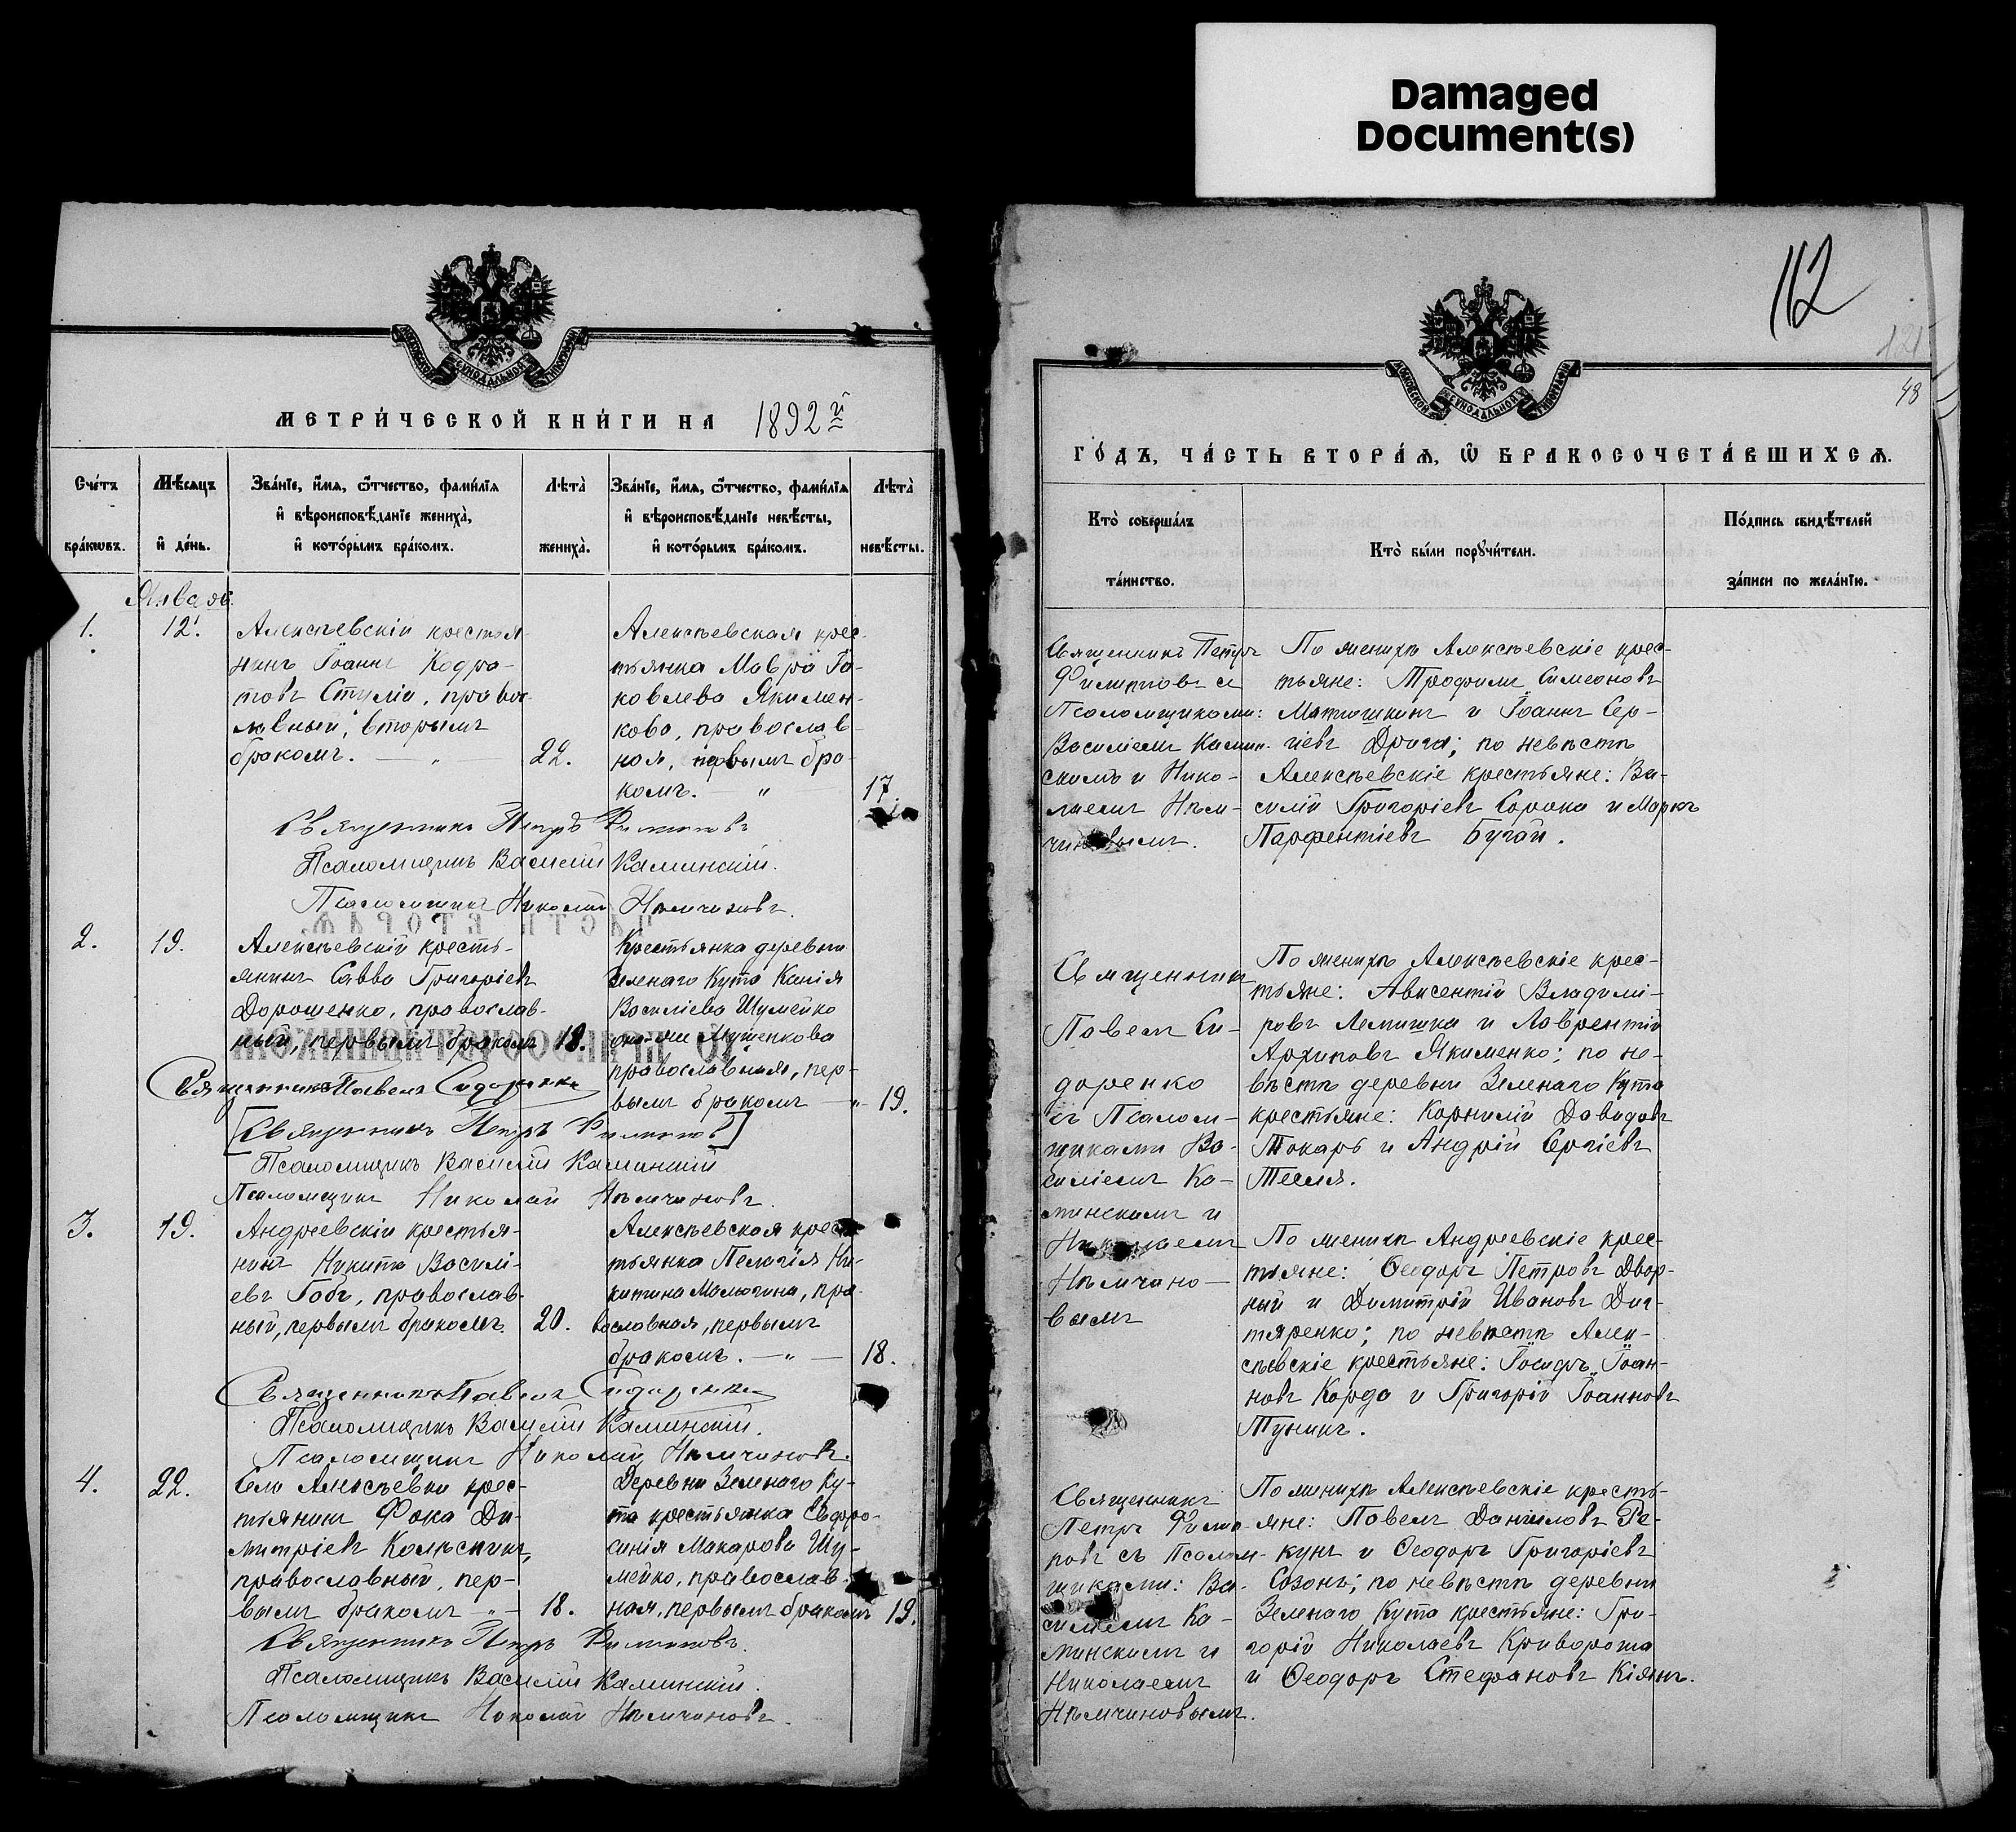 Damaged
Document(s)
МЕТРИЧЕСКОЙ КНИГИ НА 1892й
Счетъ браковъ.
Мѣсяцъ и день.
Званіе, имя, отчество, фамилія
и вѣроисповѣданіе жениха,
и которымъ бракомъ.
Лѣта жениха.
Званіе, имя, отчество, фамилія
и вѣроисповѣданіе невѣсты,
и которымъ бракомъ.
Лѣта невѣсты.
Январь
1.
12.
Алексѣевскій крестья-
нинъ Іоаннъ Кодра-
товъ , правос-
лавный, вторымъ
бракомъ. — „ —
22.
Алексѣевская крес-
тьянка Мавра Іа-
ковлева Якимен-
кова, православ-
ная, первымъ бра-
комъ. — „
17.
Священникъ Петръ Филиповъ
Псаломщикъ Василій Каминскій.
Псаломщикъ Николай Нѣмчиновъ.
2.
19.
Алексѣевскій кресть-
янинъ Савва Григоріевъ
Дорошенко, православ-
ный, первымъ бракомъ
18.
Крестьянка деревни
Зеленаго Кута
Василіева Шумейко
она-же
православная, пер-
вымъ бракомъ — „
19.
Священникъ Павелъ Сидоренко
[Священникъ Петръ Филиповъ]
Псаломщикъ Василій Каминскій
Псаломщикъ Николай Нѣмчиновъ.
3.
19.
Андреевскій крестья-
нинъ Никита Василі-
евъ , православ-
ный, первымъ бракомъ.
20.
Алексѣевская крес-
тьянка Пелагія Ни-
китина Малюгина, пра-
вославная, первымъ
бракомъ. — „ —
18.
Священникъ Павелъ Сидоренко
Псаломщикъ Василій Каминскій.
Псаломщикъ Николай Нѣмчиновъ.
4.
22.
Села Алексѣевки крес-
тьянинъ Фока Ди-
митріевъ Колѣсникъ,
православный, пер-
вымъ бракомъ — „ —
18.
Деревни Зеленаго Ку-
та крестьянка Евфро-
синія Макарова Шу-
мейко, православ-
ная, первымъ бракомъ
19.
Священникъ Петръ Филиповъ.
Псаломщикъ Василій Каминскій.
Псаломщикъ Николай Нѣмчиновъ.
112
121
48
ГОДЪ, ЧАСТЬ ВТОРАЯ, О БРАКОСОЧЕТАВШИХСЯ.
Кто совершалъ таинство.
Кто были поручители.
Подпись свидѣтелей
записи по желанію.
Священникъ Петръ
Филиповъ съ
Псаломщиками:
Василіемъ Камин-
скимъ и Нико-
лаемъ Нѣм-
чиновымъ.
По женихѣ Алексѣевскіе крес-
тьяне: Трофимъ Симеоновъ
Матюшкинъ и Іоаннъ Сер-
гіевъ Драга; по невѣстѣ
Алексѣевскіе крестьяне: Ва-
силій Григоріевъ Сорока и Маркъ
Парфентіевъ Бугай.
Священникъ
Павелъ Си-
доренко
съ Псалом-
щиками Ва-
силіемъ Ка-
минскимъ и
Николаемъ
Нѣмчино-
вымъ
По женихѣ Алексѣевскіе крес-
тьяне: Авксентій Владимі-
ровъ Лемишка и Лаврентій
Архиповъ Якименко; по не-
вѣстѣ деревни Зеленаго Кута
крестьяне: Корнилій Давидовъ
Токарь и Андрей Сергіевъ

По женихѣ Андреевскіе крес-
тьяне: Ѳеодоръ Петровъ Двор-
ный и Димитрій Ивановъ Дег-
тяренко; по невѣстѣ Алек-
сѣевскіе крестьяне: Іоан-
новъ Корда и Григорій Іоанновъ
Туникъ.
Священникъ
Петръ Фили-
повъ съ Псалом-
щиками: Ва-
силіемъ Ка-
минскимъ и
Николаемъ
Нѣмчиновымъ.
По женихѣ Алексѣевскіе кресть-
яне: Павелъ Даніиловъ Ре-
кунъ и Ѳеодоръ Григоріевъ
Созонъ; по невѣстѣ деревни
Зеленаго Кута крестьяне: Гри-
горій Николаевъ Криворота
и Ѳеодоръ Стефановъ Кіянъ.